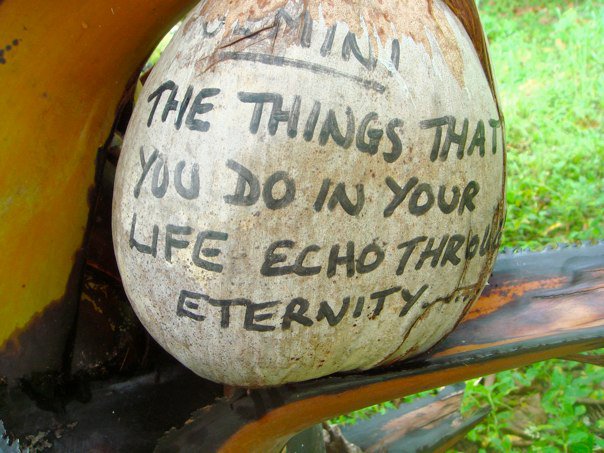 GEMINI
THE THINGS THAT
YOU DO IN YOUR
LIFE ECHO THROU
ETERNITY.....